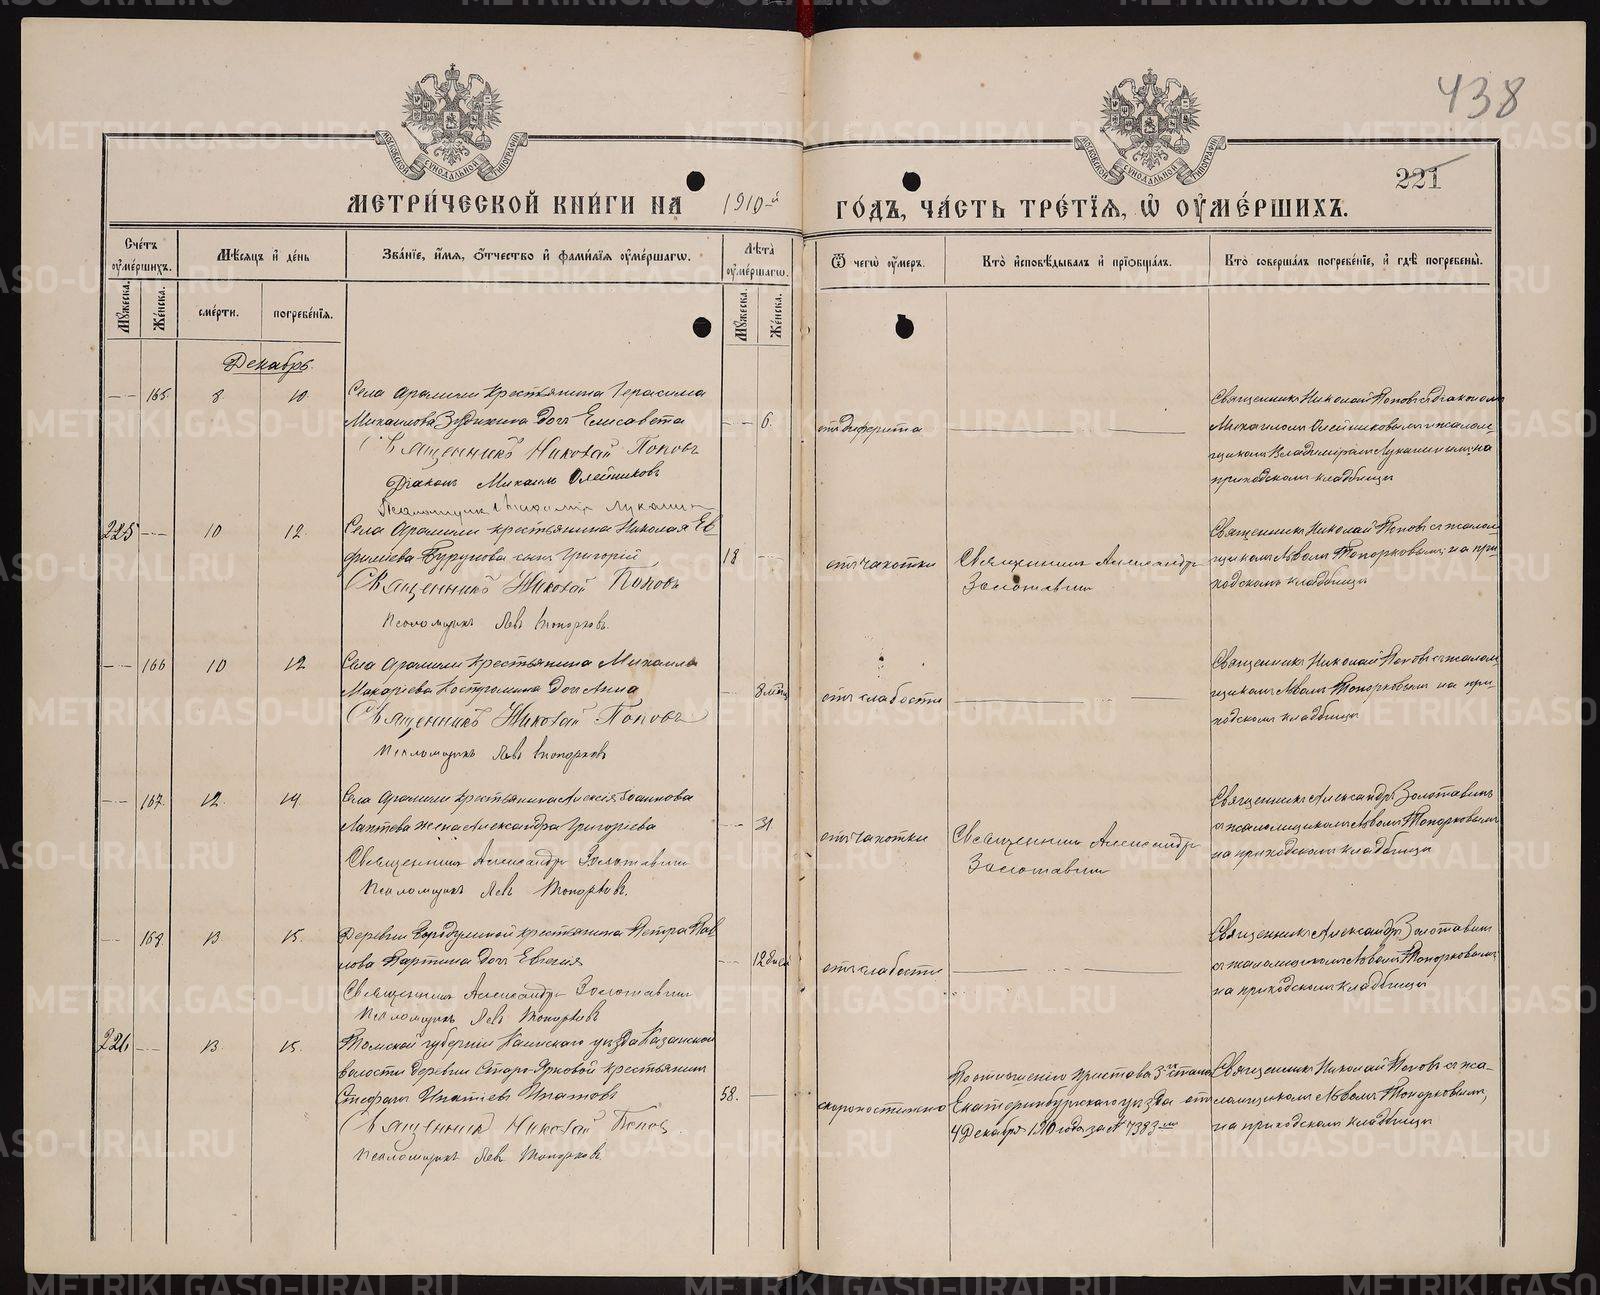 438
221
МОСКОВСКОЙ СѴНОДАЛЬНОЙ ТИПОГРАФІИ
МОСКОВСКОЙ СѴНОДАЛЬНОЙ ТИПОГРАФІИ
МЕТРИ́ЧЕСКОЙ КНИ́ГИ НА 1910-й ГО́ДЪ, ЧА́СТЬ ТРЕ́ТІѦ, Ѡ ОУМЕ́РШИХЪ.
Сче́тъ оуме́ршихъ.
Мꙋжеска.
Же́нска.
Мѣ́сѧцъ и де́нь
сме́рти.
погребе́нїѧ.
Зва́нїе, и́мѧ, о́тчество и фами́лїѧ оуме́ршагѡ.
Лѣ́та оуме́ршагѡ.
Мꙋжеска.
Же́нска.
Ѿ чегѡ̀ оу́меръ.
Кто̀ исповѣ́дывалъ и прїобща́лъ.
Кто̀ соверша́лъ погребе́нїе, и гдѣ̀ погребены̀.
Декабрь.
165. 8. 10. Села Арамили крестьянина Герасима
Михаилова дочь Елисавета 6. отъ дифтерита
Священникъ Николай Поповъ
Діаконъ Михаилъ Олейниковъ
Псаломщикъ Владимір Лукании
Священникъ Николай Поповъ съ діакономъ
Михаиломъ Олейниковымъ и псалом-
щикомъ Владиміромъ на
приходскомъ кладбищѣ
225 10 12. Села Арамили крестьянина Николая Ев
фиміева сынъ Григорій 18 отъ чахотки
Священникъ Николай Поповъ
Псаломщикъ Левъ Топорковъ.
Священникъ Александръ
Золотавинъ
Священникъ Николай Поповъ съ псалом
щикомъ Львомъ Топорковымъ на при-
ходскомъ кладбищѣ
166 10 12 Села Арамили крестьянина Михаила
Макаріева Костромина дочь Анна 8 мѣс. отъ слабости
Священникъ Николай Поповъ
Псаломщикъ Левъ Топорковъ
Священникъ Николай Поповъ съ псалом
щикомъ Львомъ Топорковымъ на при-
ходскомъ кладбищѣ
167. 12. 14. Села Арамили крестьянина Алексія Іоаннова
Лаптева жена Александра Григоріева 31. отъ чахотки
Священникъ Александръ Золотавинъ
Псаломщикъ Левъ Топорковъ.
Священникъ Александръ
Золотавинъ
Священникъ Александръ Золотавинъ
съ псаломщикомъ Львомъ Топорковымъ
на приходскомъ кладбищѣ
168 13 15. Деревни крестьянина Петра Пав
лова дочь Евгенія 12 дней отъ слабости
Священникъ Александръ Золотавинъ
Псаломщикъ Левъ Топорковъ
Священникъ Александръ Золотавинъ
съ псаломщикомъ Львомъ Топорковымъ
на приходскомъ кладбищѣ
226 13. 15. Томской губерніи Каинскаго уѣзда Казанской
волости деревни Старо-Ярковой крестьянинъ
Стефанъ Ипатіевъ Ипатовъ 58. скоропостижно
Священникъ Николай Поповъ.
Псаломщикъ Левъ Топорковъ.
По отношенію пристава 3го стана
Екатеринбургскаго уѣзда отъ
4 Декабря 1910 года за № 7383-мъ
Священникъ Николай Поповъ съ пса-
ломщикомъ Львомъ Топорковымъ,
на приходскомъ кладбищѣ
METRIKI.GASO-URAL.RU